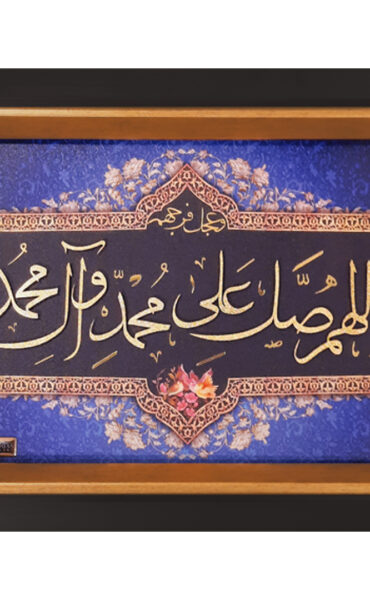 وعجل فرجهم
اللهم صل علی محمد وآل محمد